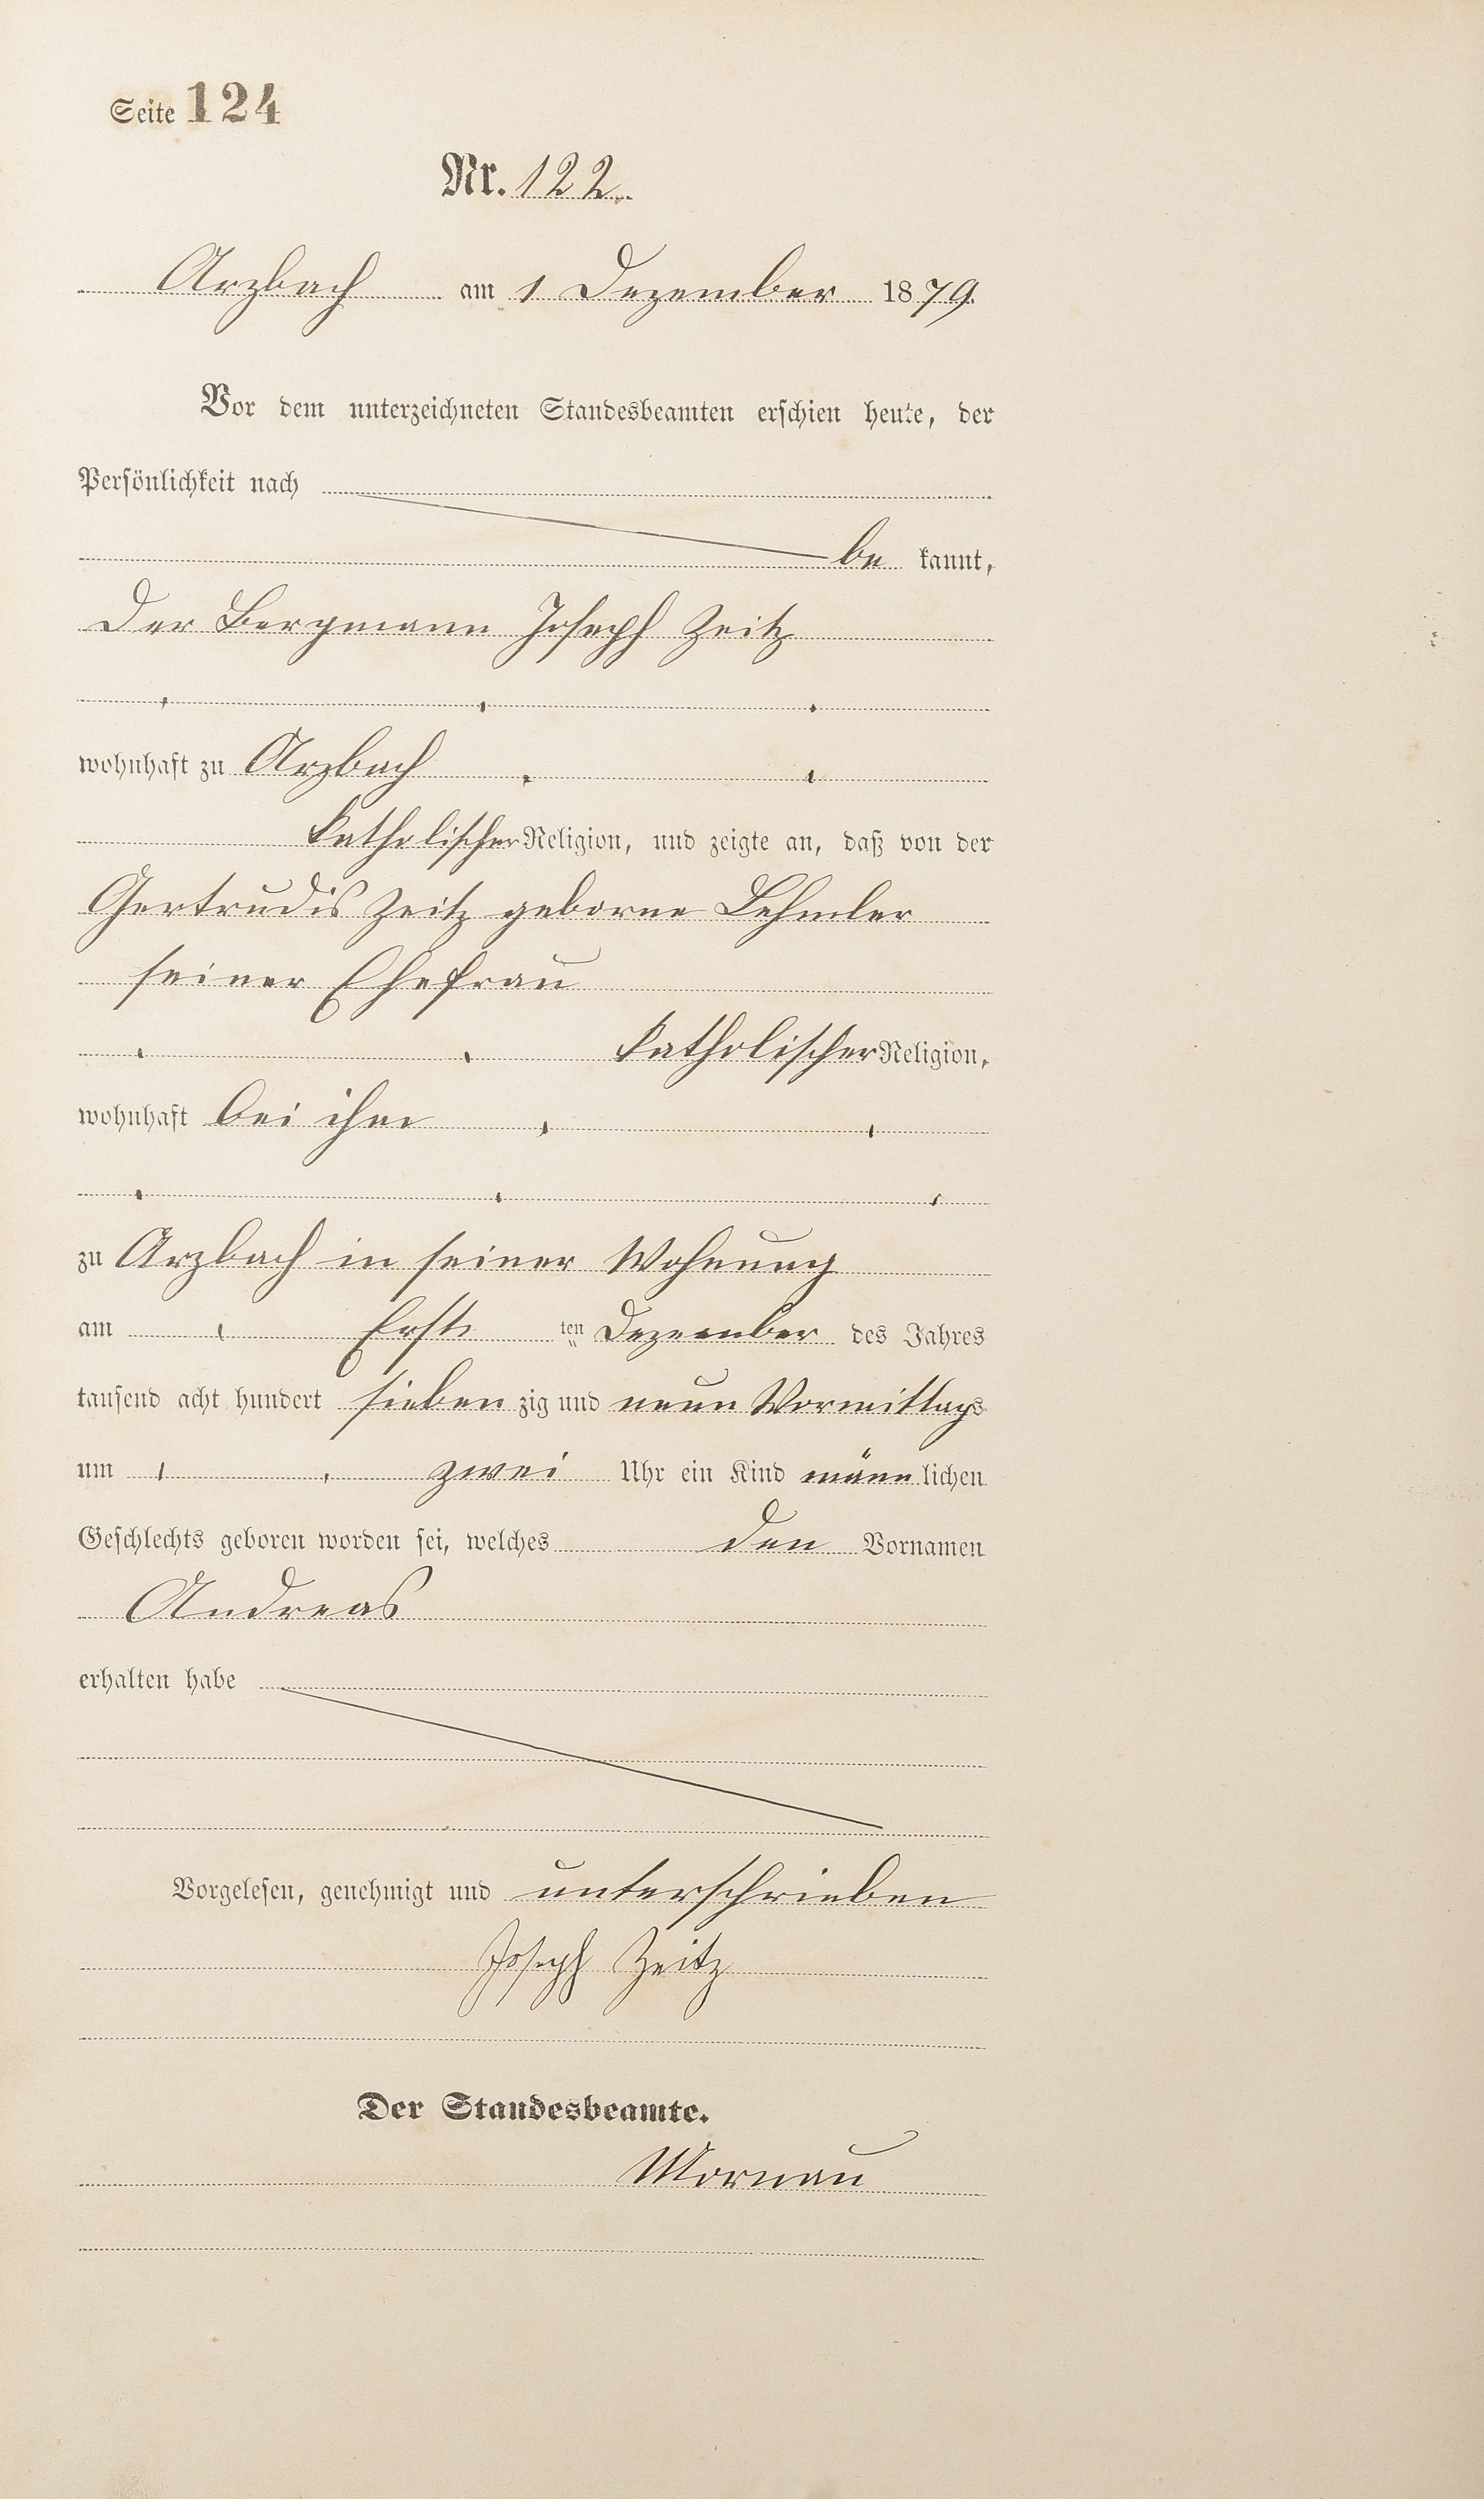 Seite 124
Nr. 122.
Arzbach am 1 Dezember 1879.
Vor dem unterzeichneten Standesbeamten erschien heute, der
Persönlichkeit nach
be kannt,
Der Bergmann Joseph Zeitz
wohnhaft zu Arzbach
katholischer Religion, und zeigte an, daß von der
Gertrudis Zeitz geborne Lehmler
seiner Ehefrau
katholischer Religion,
wohnhaft bei ihm
zu Arzbach in seiner Wohnung
am Erst ten Dezember des Jahres
tausend acht hundert sieben zig und neun Vormittags
um zwei Uhr ein Kind männ lichen
Geschlechts geboren worden sei, welches den Vornamen
Andreas
erhalten habe
Vorgelesen, genehmigt und unterschrieben
Joseph Zeitz
Der Standesbeamte.
Mornau